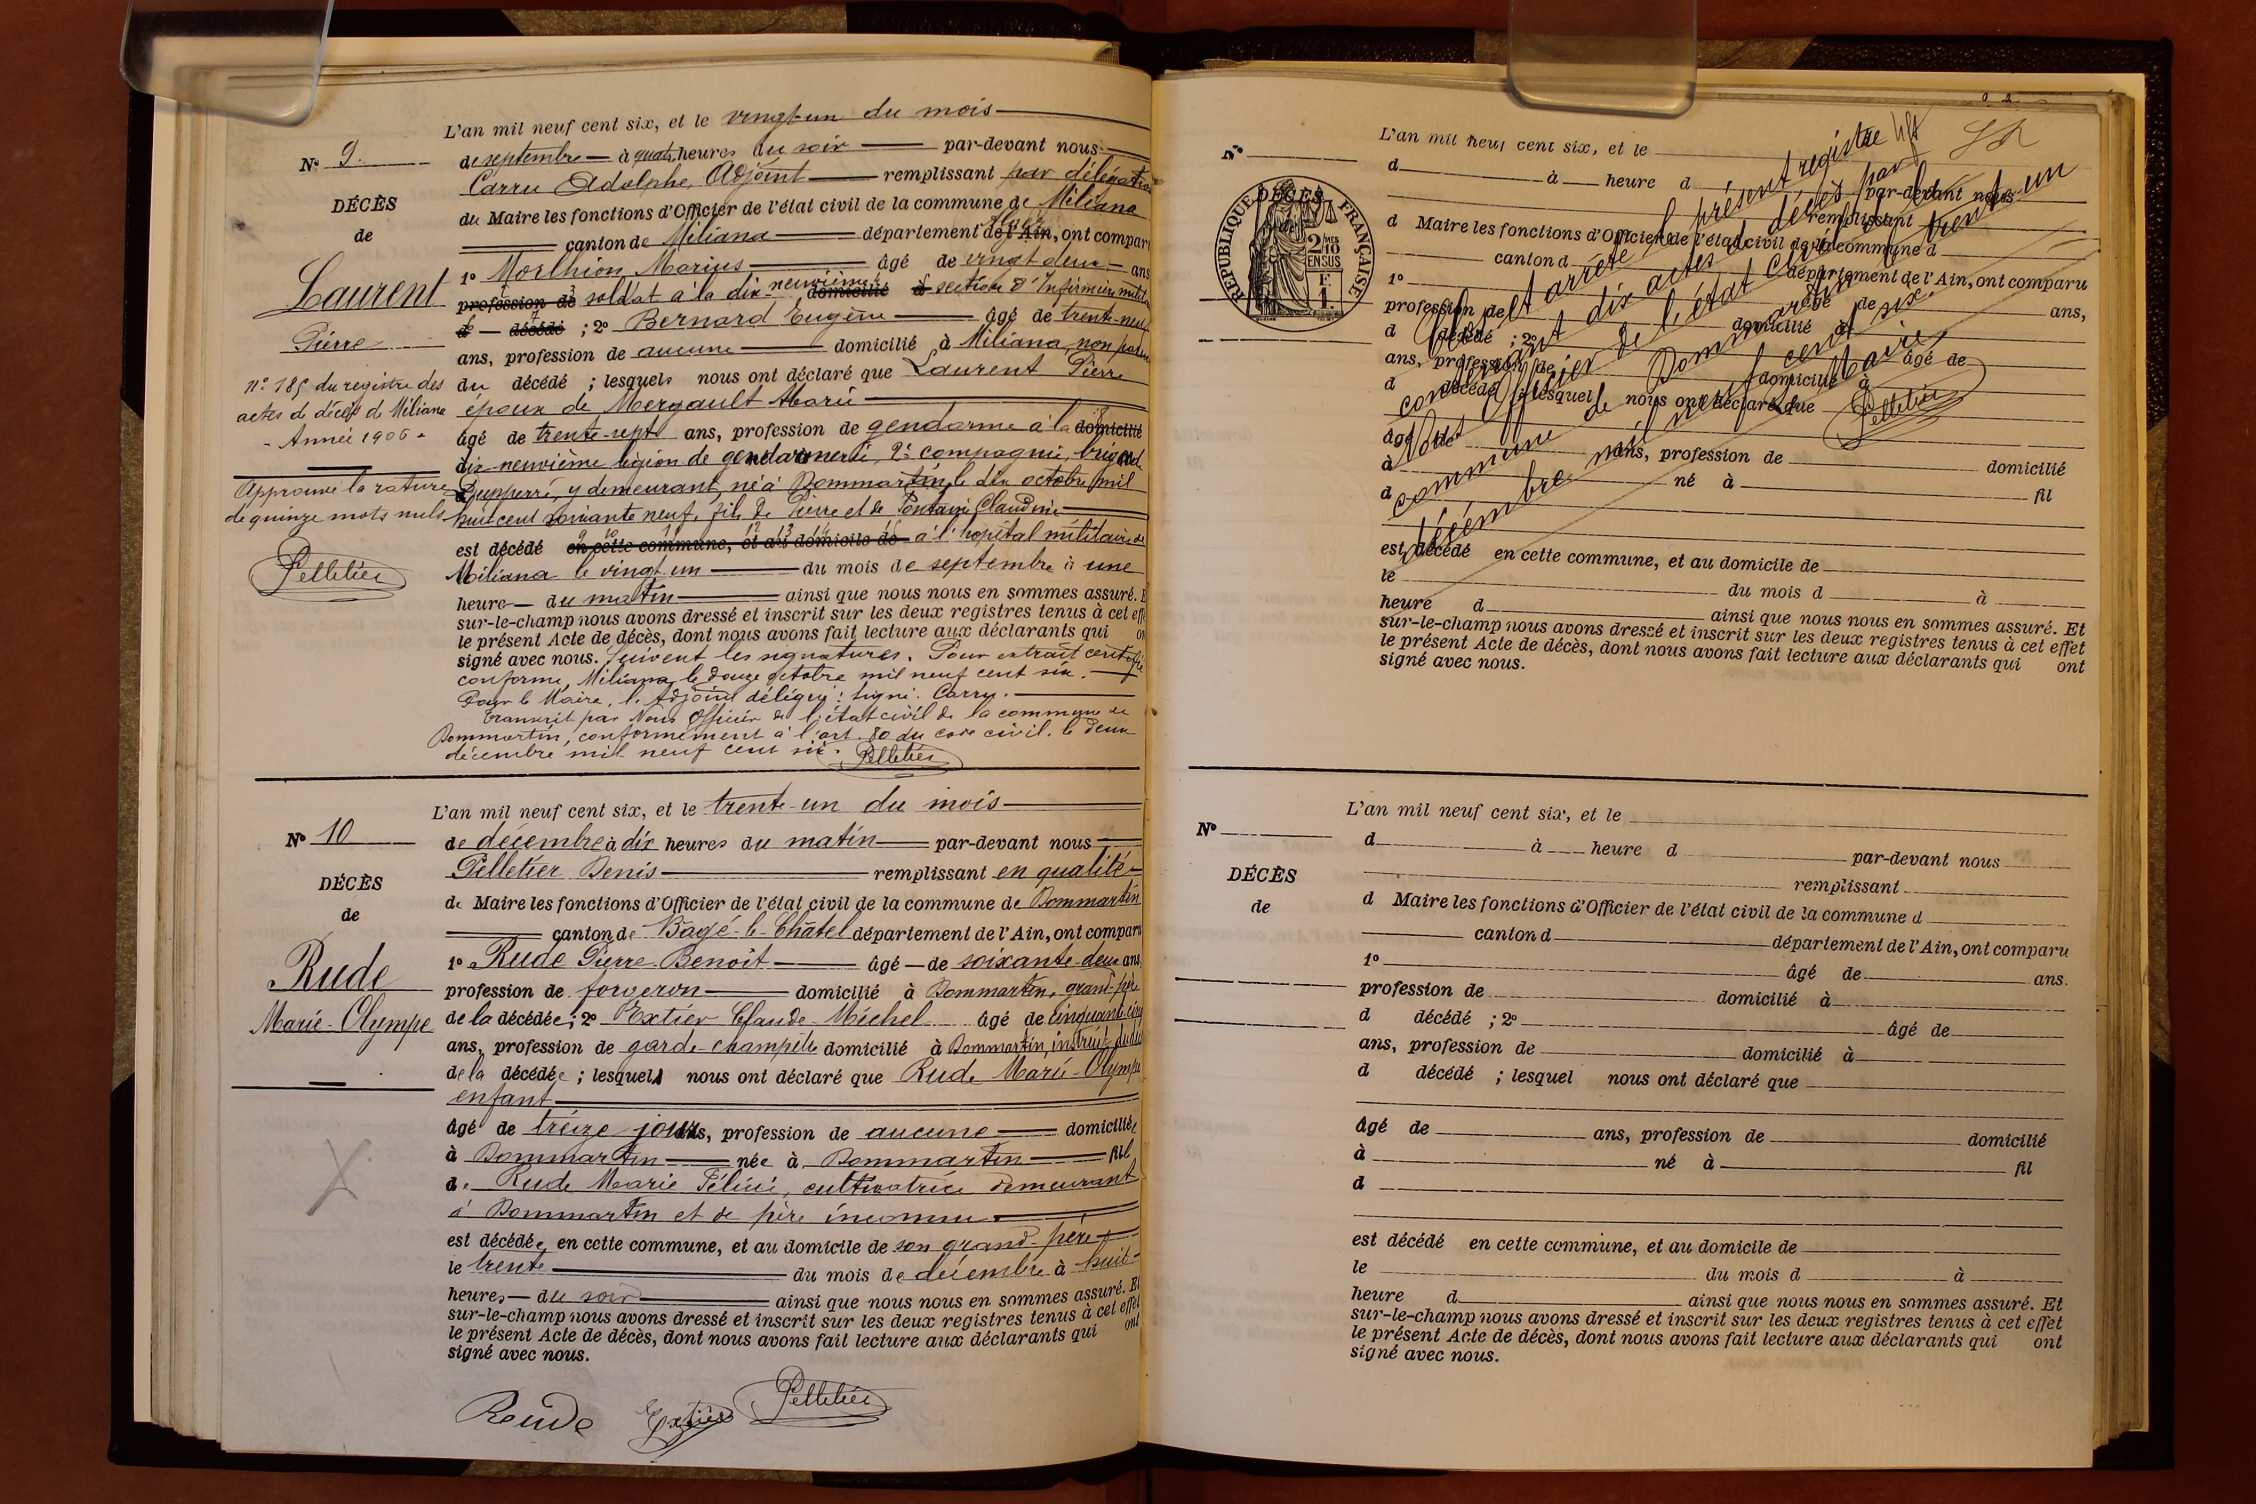 L'an mil neuf cent six, et le vingt-un du mois
N° 9.
de septembre à quatre heures du soir par-devant nous
Carru Adolphe, Adjoint remplissant par délégation
DÉCÈS
de
du Maire les fonctions d'Officier de l'état civil de la commune de Miliana
canton de Miliana département de l'Ain, Alger, ont comparu
1° Morlhion Marius âgé de vingt deux ans
Laurent
Pierre
profession de soldat à la dix-neuvième domicilié à section d'Infirmiers milit
d décédé ; 2° Bernard Eugène âgé de trente-neuf
ans, profession de aucune domicilié à Miliana, non parent
n° 185 du registre des
actes de décès de Miliana
- Année 1906 -
du décédé ; lesquels nous ont déclaré que Laurent Pierre
époux de Mergault Marie
âgé de trente-sept ans, profession de gendarme à la domicilié
dix-neuvième légion de gendarmerie, 2e compagnie, brigade
Approuvé la rature
de quinze mots nuls
Pelletier
Duperré, y demeurant, né à Dommartin, le dix octobre mil
huit cent soixante neuf, fils de Pierre et de Pontani Claudine
est décédé en cette commune, et au domicile de à l'hôpital militaire de
Miliana le vingt un du mois de septembre à une
heure du matin ainsi que nous nous en sommes assuré. E
sur-le-champ nous avons dressé et inscrit sur les deux registres tenus à cet effe
le présent Acte de décès, dont nous avons fait lecture aux déclarants qui on
signé avec nous. Suivent les signatures. Pour extrait certifié
conforme, Miliana, le douze octobre mil neuf cent six.
Pour le Maire, l'Adjoint délégué : signé : Carru.
Transcrit par Nous Officier de l'état civil de la commune de
Dommartin, conformément à l'art. 80 du code civil. le deux
décembre mil neuf cent six. Pelletier
L'an mil neuf cent six, et le trente-un du mois
N° 10
de décembre à dix heures du matin par-devant nous
Pelletier Denis remplissant en qualité
DÉCÈS
de
de Maire les fonctions d'Officier de l'état civil de la commune de Dommartin
canton de Bâgé-le-Châtel département de l'Ain, ont comparu
1° Rude Pierre-Benoit âgé de soixante-deux ans
Rude
Marie-Olympe
profession de forgeron domicilié à Dommartin, grand-père
de la décédée ; 2° Extier Claude-Michel âgé de cinquante-cinq
ans, profession de garde-champêtre domicilié à Dommartin, instruit du décès
de la décédée ; lesquels nous ont déclaré que Rude Marie-Olympe
enfant
âgé de treize jours, profession de aucune domiciliée
à Dommartin née à Dommartin fil
de Rude Marie Félicie, cultivatrice demeurant
à Dommartin et de père inconnu
est décédée en cette commune, et au domicile de son grand-père
le trente du mois de décembre à huit
heures du soir ainsi que nous nous en sommes assuré. Et
sur-le-champ nous avons dressé et inscrit sur les deux registres tenus à cet effet
le présent Acte de décès, dont nous avons fait lecture aux déclarants qui ont
signé avec nous.
Rude Extier Pelletier
L'an mil neuf cent six, et le
N°
d à heure d par-devant nous
remplissant
DÉCÈS
de
RÉPUBLIQUE FRANÇAISE
2 MES
10
EN SUS
F
1.
d Maire les fonctions d'Officier de l'état civil de la commune d
canton d département de l'Ain, ont comparu
1° âgé de ans,
profession de domicilié à
d décédé ; 2° âgé de
ans, profession de domicilié à
d décédé ; lesquel nous ont déclaré que
âgé de ans, profession de domicilié
à né à fil
d
est décédé en cette commune, et au domicile de
le du mois d à
heure d ainsi que nous nous en sommes assuré. Et
sur-le-champ nous avons dressé et inscrit sur les deux registres tenus à cet effet
le présent Acte de décès, dont nous avons fait lecture aux déclarants qui ont
signé avec nous.
Clos et arrêté le présent registre
contenant dix actes de décès par
Nous Officier de l'état civil de la
commune de Dommartin le trente un
décembre mil neuf cent six.
Le Maire,
Pelletier
L'an mil neuf cent six, et le
N°
d à heure d par-devant nous
remplissant
DÉCÈS
de
d Maire les fonctions d'Officier de l'état civil de la commune d
canton d département de l'Ain, ont comparu
1° âgé de ans.
profession de domicilié à
d décédé ; 2° âgé de
ans, profession de domicilié à
d décédé ; lesquel nous ont déclaré que
âgé de ans, profession de domicilié
à né à fil
d
est décédé en cette commune, et au domicile de
le du mois d à
heure d ainsi que nous nous en sommes assuré. Et
sur-le-champ nous avons dressé et inscrit sur les deux registres tenus à cet effet
le présent Acte de décès, dont nous avons fait lecture aux déclarants qui ont
signé avec nous.